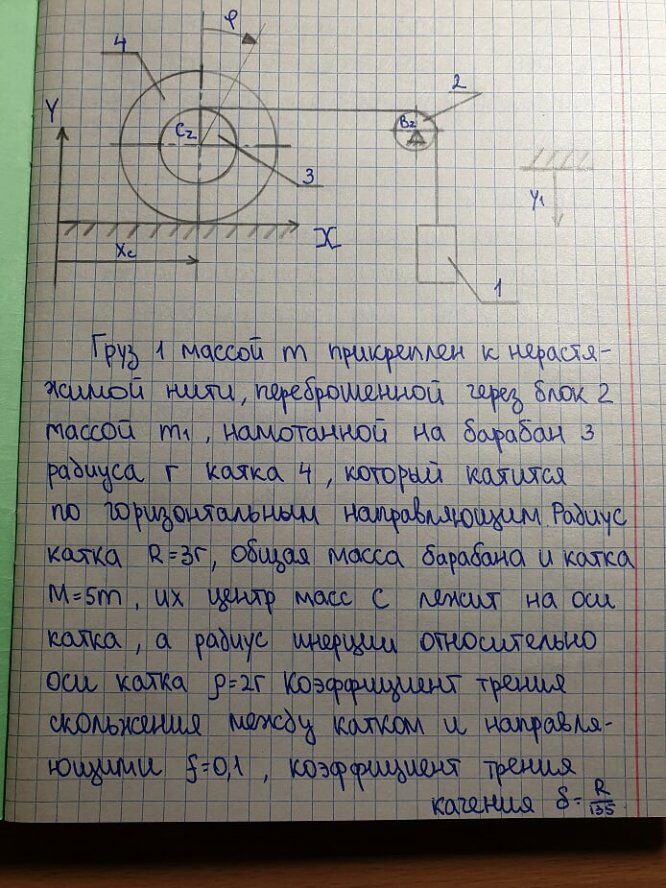 φ
4
2
Y
C₂
B₂
3
Y₁
X
Xc
1
Груз 1 массой m прикреплен к нерастя-
жимой нити, переброшенной через блок 2
массой m₁, намотанной на барабан 3
радиуса r катка 4, который катится
по горизонтальным направляющим. Радиус
катка R=3r, общая масса барабана и катка
M=5m, их центр масс С лежит на оси
катка, а радиус инерции относительно
оси катка ρ=2r Коэффициент трения
скольжения между катком и направля-
ющими f=0,1, коэффициент трения
качения δ=R/135